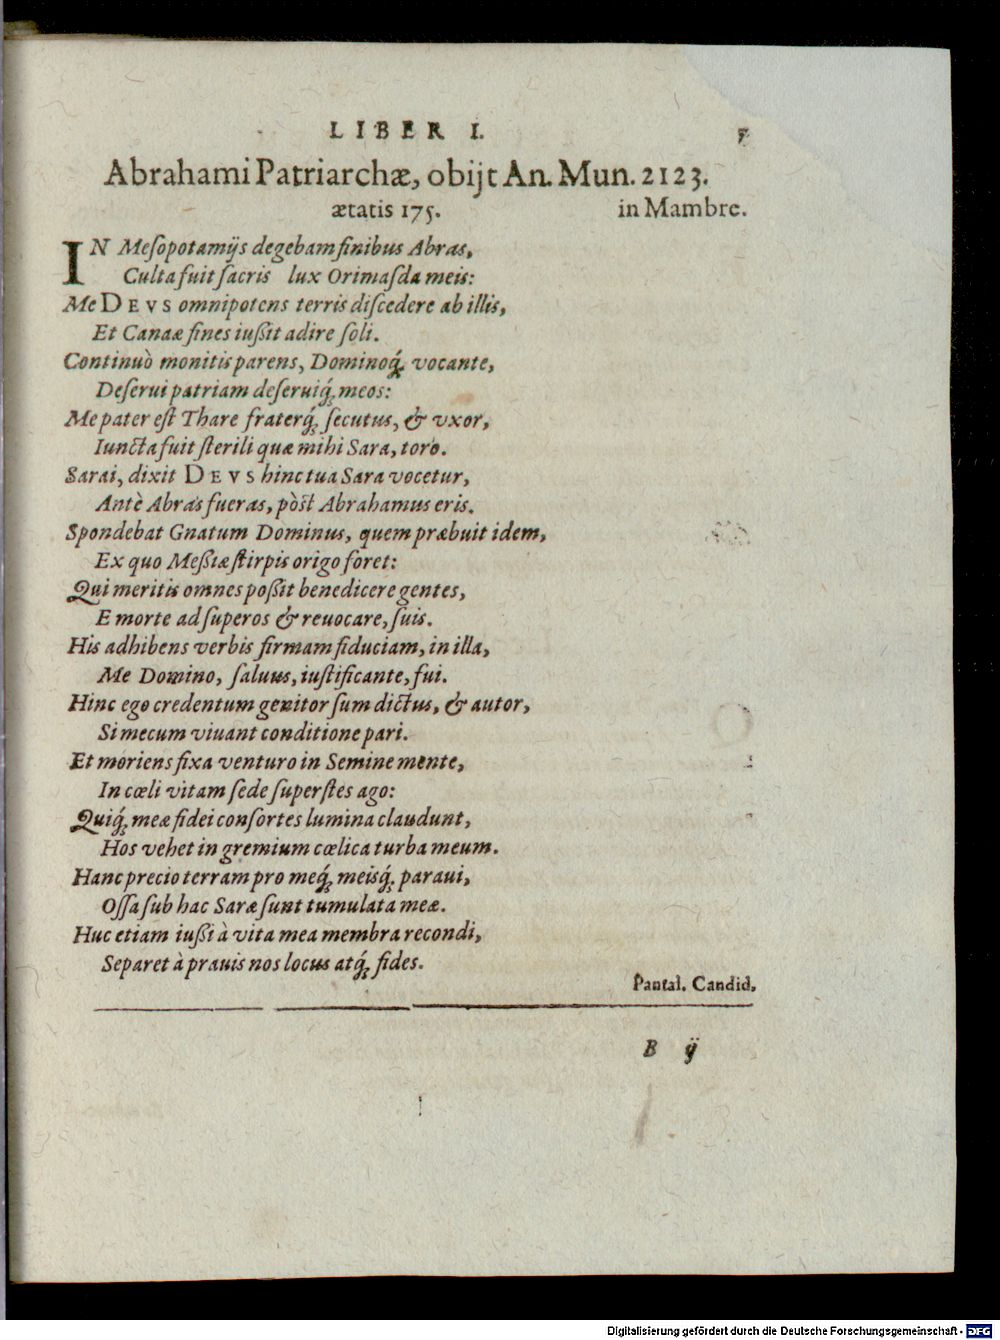 LIBER I. 5
Abrahami Patriarchæ, obijt An. Mun. 2123.
ætatis 175. in Mambre.
IN Meſopotamijs degebam finibus Abras,
Culta fuit ſacris lux Orimaſda meis:
Me DEVS omnipotens terris diſcedere ab illis,
Et Canaæ fines iußit adire ſoli.
Continuò monitis parens, Dominoq́; vocante,
Deſerui patriam deſeruiq́; meos:
Me pater eſt Thare fraterq́; ſecutus, & vxor,
Iuncta fuit ſterili quæ mihi Sara, toro.
Sarai, dixit DEVS hinc tua Sara vocetur,
Antè Abras fueras, pòſt Abrahamus eris.
Spondebat Gnatum Dominus, quem præbuit idem,
Ex quo Meßiæ ſtirpis origo foret:
Qui meritis omnes poßit benedicere gentes,
E morte ad ſuperos & reuocare, ſuis.
His adhibens verbis firmam fiduciam, in illa,
Me Domino, ſaluus, iuſtificante, fui.
Hinc ego credentum genitor ſum dictus, & autor,
Si mecum viuant conditione pari.
Et moriens fixa venturo in Semine mente,
In cœli vitam ſede ſuperſtes ago:
Quiq́; meæ fidei conſortes lumina claudunt,
Hos vehet in gremium cœlica turba meum.
Hanc precio terram pro meq́; meisq́; paraui,
Oſſa ſub hac Saræ ſunt tumulata meæ.
Huc etiam iußi à vita mea membra recondi,
Separet à prauis nos locus atq́; fides.
Pantal. Candid.
B ij
Digitalisierung gefördert durch die Deutsche Forschungsgemeinschaft - DFG